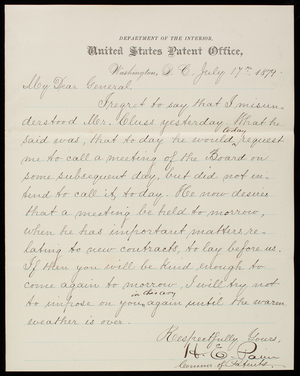 DEPARTMENT OF THE INTERIOR,
United States Patent Office,
Washington, D. C. July 17th 1879.
My Dear General
I regret to say that I misun-
derstood Mr. Cluss yesterday. What he
said was, that to day he would today request
me to call a meeting of the Board on
some subsequent day, but did not in-
tend to call it, to day. He now desires
that a meeting be held to morrow,
when he has important matters re-
lating to new contracts, to lay before us.
If then you will be kind enough to
come again to morrow, I will try not
to impose on you, in this way again until the warm
weather is over.
Respectfully Yours,
H. E. Paine
Commr. of Patents